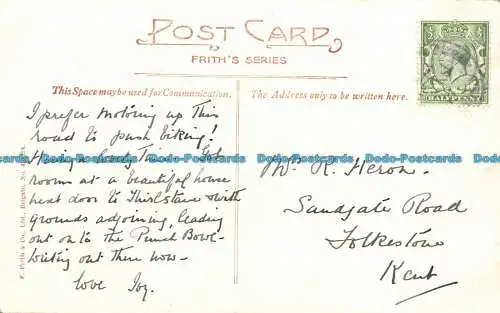 POST CARD
FRITH'S SERIES
This Space may be used for Communication.
The Address only to be written here.
HALFPENNY
I prefer motoring up this
road to push biking!
Having a lovely Time. Got
rooms at a beautiful house
next door to with
grounds adjoining, leading
out on to the Punch Bowl.
Writing out there now —
Love Joy.
Mr. R. Heron.
Sandgate Road
Folkestone
Kent
F. Frith & Co., Ltd., Reigate. No.
Dodo-Postcards Dodo-Postcards Dodo-Postcards Dodo-Postcards Dodo-Postcards